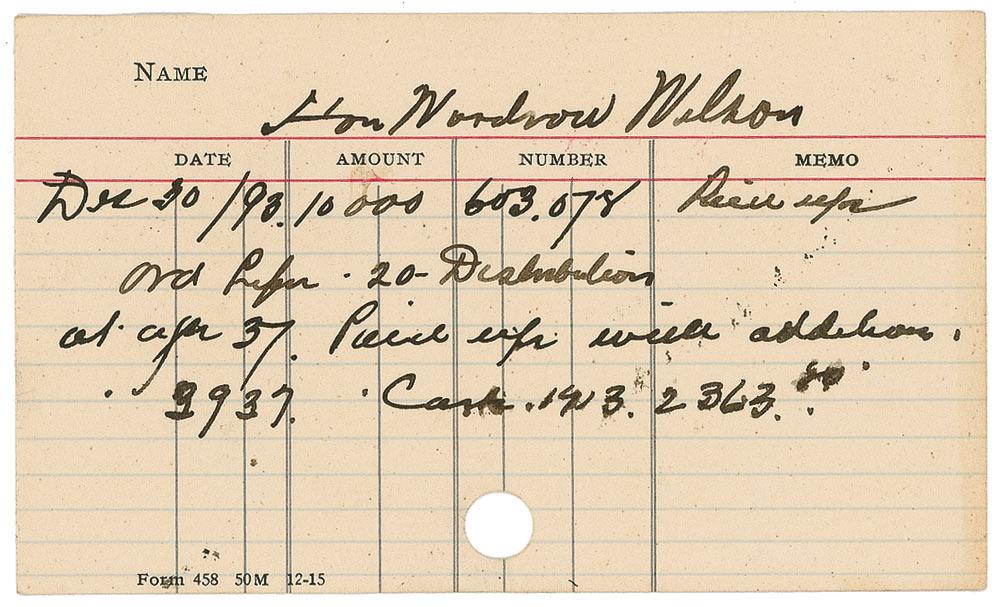 NAME
Hon Woodrow Wilson
DATE AMOUNT NUMBER MEMO
Dec 30 /93. 10 000 603.078 Paid up
Ord Life · 20 - Distribution
at age 37. Paid up with addition.
3937. " Cash. 1913. 2363.
Form 458 50M 12-15